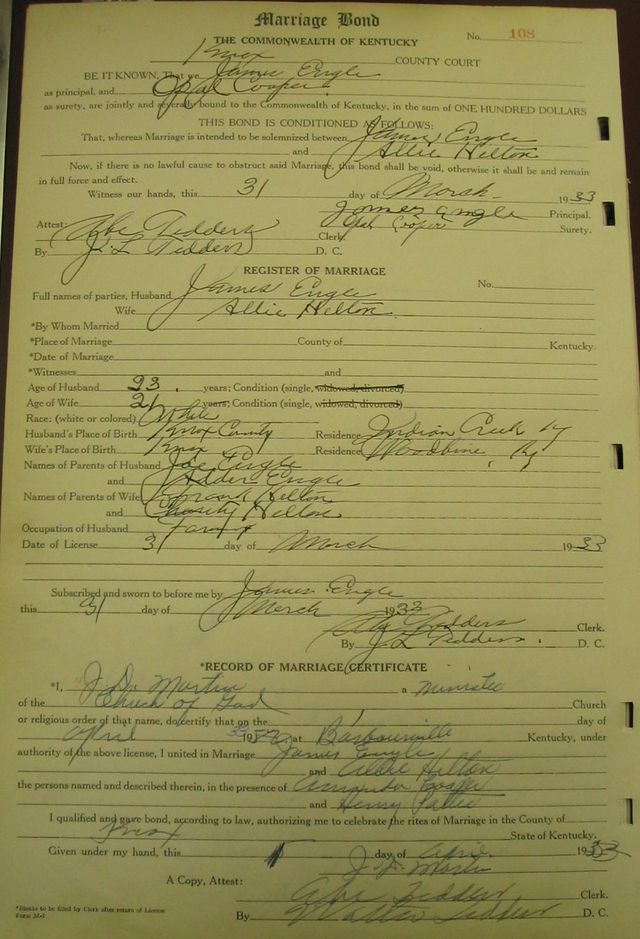 Marriage Bond
THE COMMONWEALTH OF KENTUCKY No. 108
Knox COUNTY COURT
BE IT KNOWN, That we James Engle
as principal, and Opal Cooper
as surety, are jointly and severally bound to the Commonwealth of Kentucky, in the sum of ONE HUNDRED DOLLARS
THIS BOND IS CONDITIONED AS FOLLOWS:
That, whereas Marriage is intended to be solemnized between James Engle
and Allie Helton
Now, if there is no lawful cause to obstruct said Marriage, this bond shall be void, otherwise it shall be and remain
in full force and effect.
Witness our hands, this 31 day of March 1933
James Engle Principal.
Attest: Abe Tedders Clerk. Opal Cooper Surety.
By J. L. Tedders D. C.
REGISTER OF MARRIAGE
Full names of parties, Husband James Engle No.
Wife Allie Helton
*By Whom Married
*Place of Marriage County of Kentucky.
*Date of Marriage
*Witnesses and
Age of Husband 23. years; Condition (single, widowed, divorced)
Age of Wife 21 years; Condition (single, widowed, divorced)
Race: (white or colored) White
Husband's Place of Birth Knox County Residence Indian Creek Ky
Wife's Place of Birth Knox Residence Woodbine, Ky
Names of Parents of Husband Joe Engle
and Engle
Names of Parents of Wife Helton
and Helton
Occupation of Husband
Date of License 31 day of March 1933
Subscribed and sworn to before me by James Engle
this 31 day of March 1933
Abe Tedders Clerk.
By J L Tedders. D. C.
*RECORD OF MARRIAGE CERTIFICATE
*I, J. D. Martin a minister
of the Church of God Church
or religious order of that name, do certify that on the 1 day of
April 1933 at Barbourville Kentucky, under
authority of the above license, I united in Marriage James Engle
and Allie Helton
the persons named and described therein, in the presence of Amanda
and Henry
I qualified and gave bond, according to law, authorizing me to celebrate the rites of Marriage in the County of
Knox State of Kentucky.
Given under my hand, this 1 day of April 1933
J. D. Martin
A Copy, Attest: Abe Tedders Clerk.
By Walter Tedders D. C.
*Blanks to be filled by Clerk after return of License
Form M-1